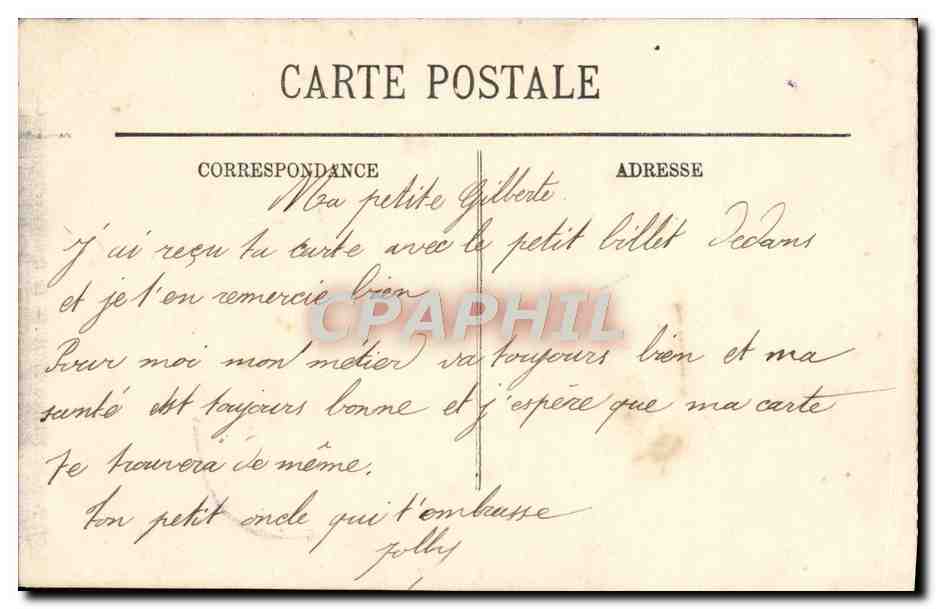 CARTE POSTALE
CORRESPONDANCE
ADRESSE
Ma petite Gilberte
J'ai reçu ta carte avec le petit billet dedans
et je t'en remercie bien
CPAPHIL
Pour moi mon métier va toujours bien et ma
santé est toujours bonne et j'espère que ma carte
te trouvera de même.
ton petit oncle qui t'embrasse